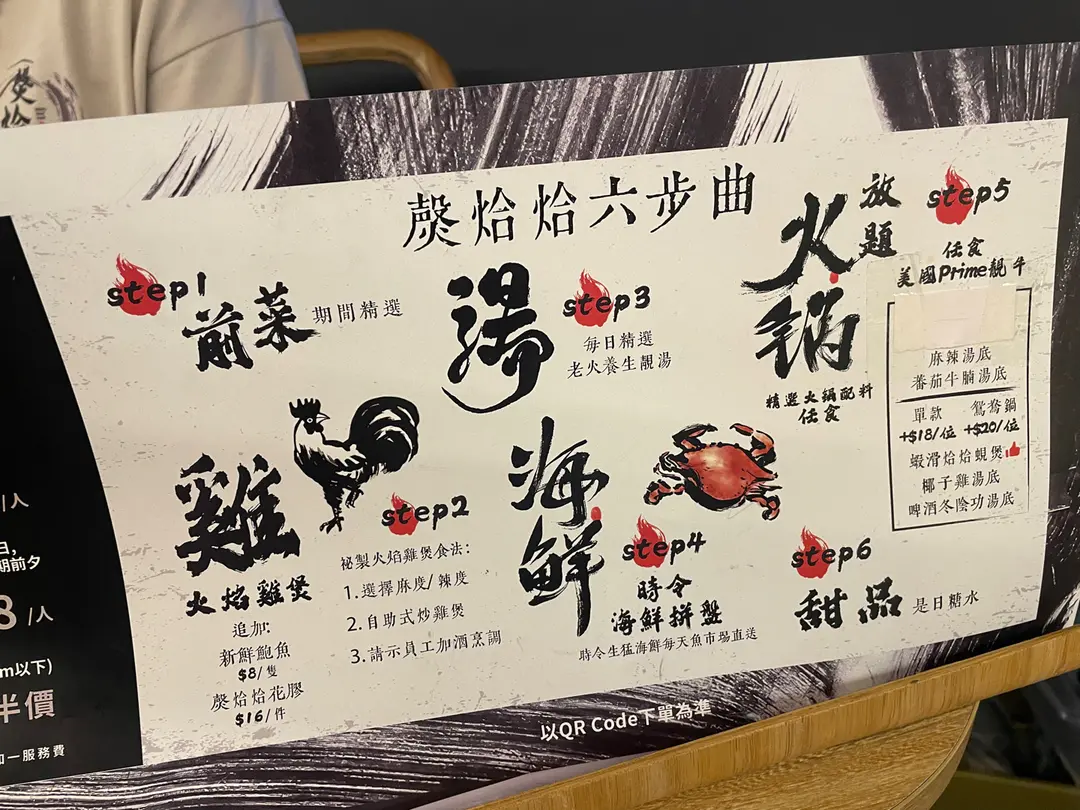 煲
烚
/人
日,
期前夕
8/人
m以下)
半價
加一服務費
烚烚六步曲
step1
前菜
期間精選
雞
火焰雞煲
追加:
新鮮鮑魚
$8/隻
烚烚花膠
$16/件
step2
祕製火焰雞煲食法:
1.選擇麻度/辣度
2.自助式炒雞煲
3.請示員工加酒烹調
湯
step3
每日精選
老火養生靚湯
海鮮
step4
時令
海鮮拼盤
時令生猛海鮮每天魚市場直送
火鍋
放題
精選火鍋配料
任食
step5
任食
美國Prime靚牛
麻辣湯底
蕃茄牛腩湯底
單款 鴛鴦鍋
+$18/位 +$20/位
蝦滑烚烚蜆煲
椰子雞湯底
啤酒冬陰功湯底
step6
甜品
是日糖水
以QR Code下單為準